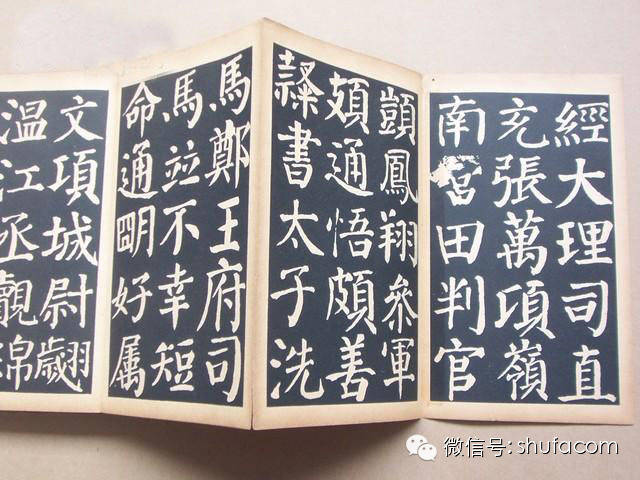 經大理司直
充張萬頃嶺
南營田判官
顗鳳翔參軍
頍通悟頗善
隸書太子洗
馬鄭王府司
馬並不幸短
命通明好属
文項城尉翽
温江丞覿綿
微信号: shufacom